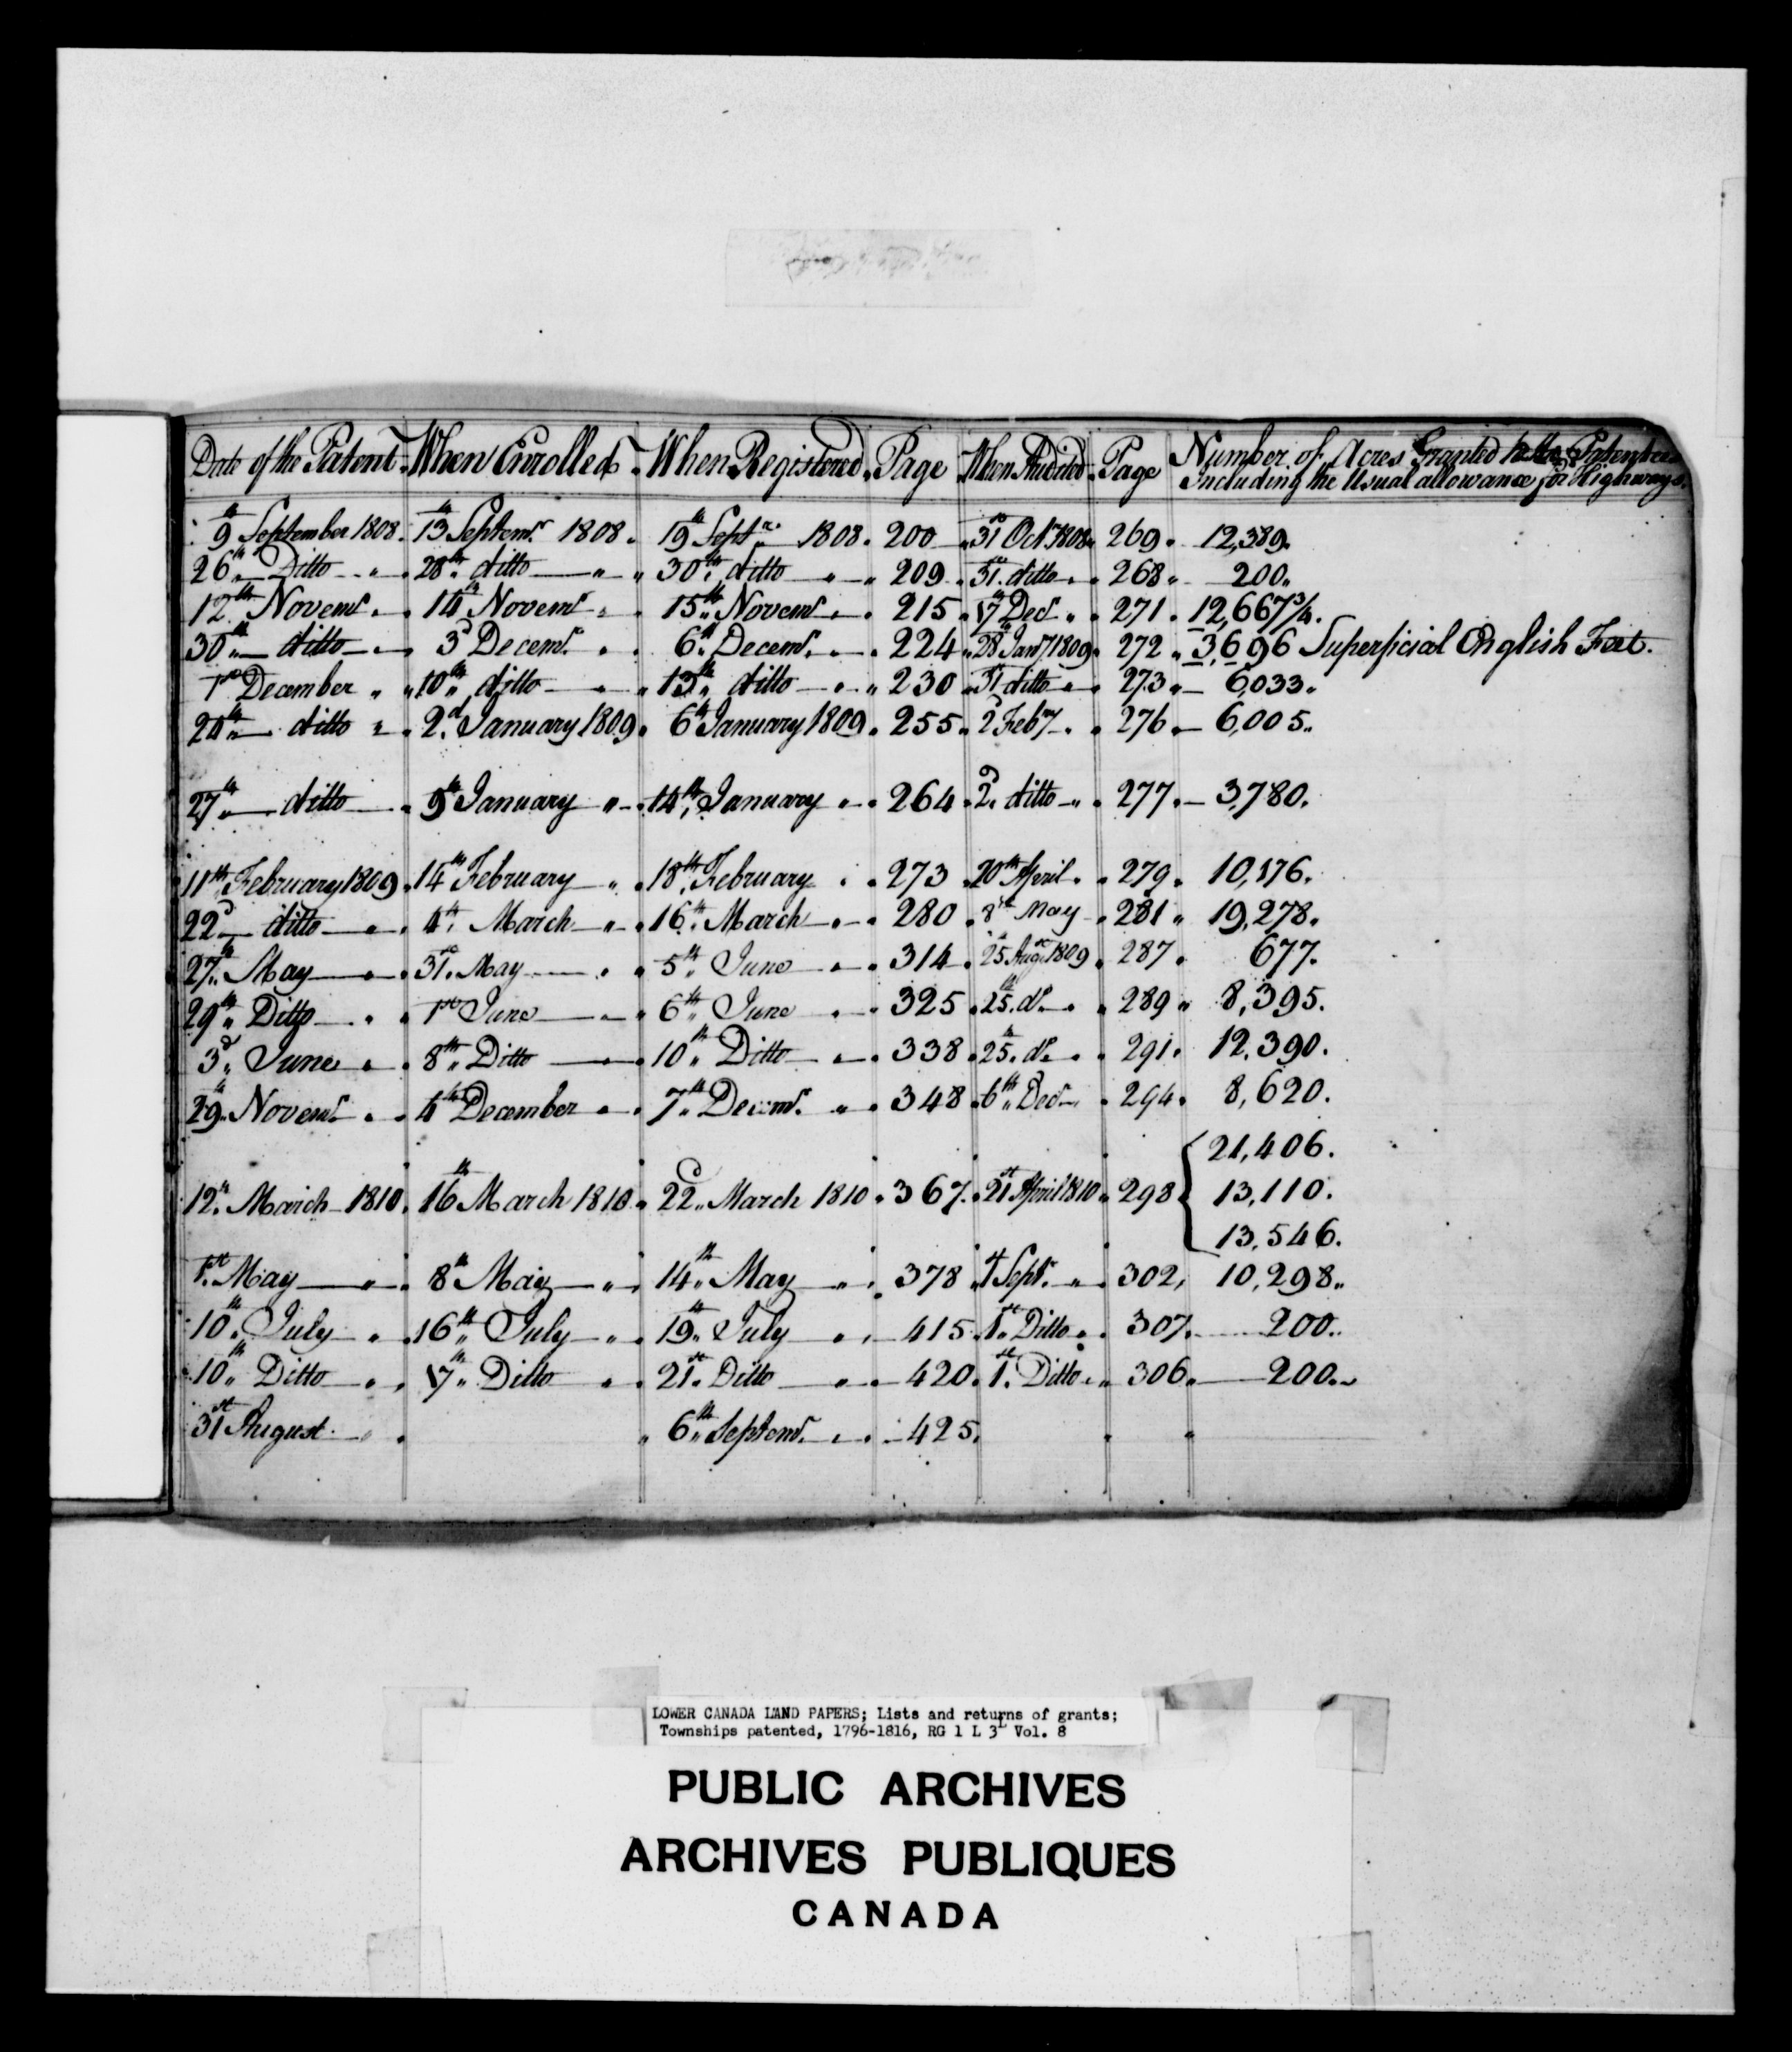 Date of the Patent When Enrolled When Registered Page When Audited Page Number of Acres Granted to the Patentees
Including the Usual allowance for Highways.
9th September 1808. 13th Septemr 1808. 19th Septr 1808. 200 31st Octr 1808. 269. 12,389.
26th Ditto 28th ditto 30th ditto 209 31st ditto 268 200
12th Novemr 14th Novemr 15th Novemr 215 17th Decr 271. 12,667 3/4.
30th ditto 3d Decemr 6th Decemr 224 28th Jany 1809 272 3,696 Superficial English Feet.
1st December 10th ditto 13th ditto 230 31st ditto 273 6,033.
24th ditto 2d January 1809. 6th January 1809. 255. 2d Feby 276 6,005.
27th ditto 9th January 14th January 264 2d ditto 277 3,780.
11th February 1809 14th February 18th February 273 20th April 279 10,176.
22d ditto 4th March 16th March 280 8th May 281 19,278.
27th May 31st May 5th June 314 25th Augst 1809 287 677.
29th Ditto 1st June 6th June 325 25th do 289 8,395.
3d June 8th Ditto 10th Ditto 338 25th do 291. 12,390.
29th Novemr 4th December 7th Decemr 348 6th Decr 294. 8,620.
21,406.
12th March 1810. 16th March 1810 22d March 1810 367. 21st April 1810 298 13,110.
13,546.
1st May 8th May 14th May 378 1st Septr 302, 10,298.
10th July 16th July 19th July 415 1st Ditto 307. 200.
10th Ditto 17th Ditto 21st Ditto 420. 1st Ditto 306. 200.
31st August 6th Septemr 425.
LOWER CANADA LAND PAPERS; Lists and returns of grants;
Townships patented, 1796-1816, RG 1 L 3L Vol. 8
PUBLIC ARCHIVES
ARCHIVES PUBLIQUES
CANADA